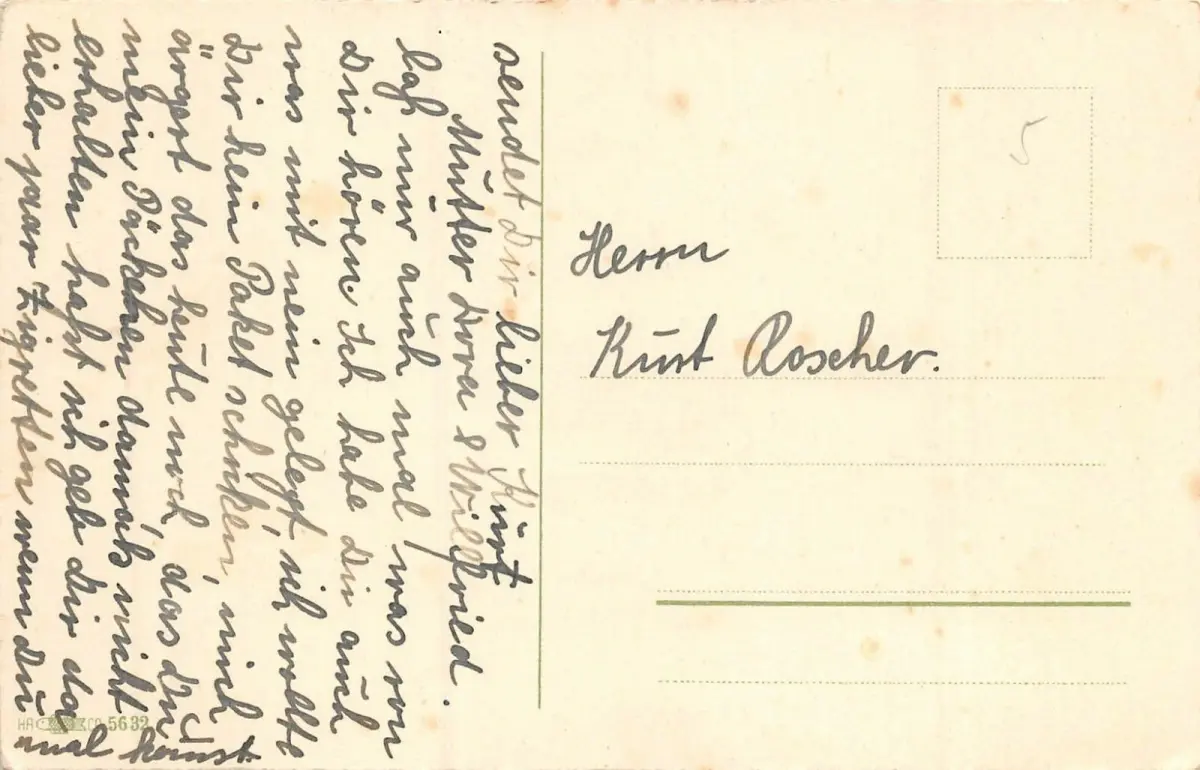 sendet Dir lieber Kurt
Mutter Dora & Wilfried.
laß nur auch mal was von
Dir hören. Ich habe Dir auch
was mit nein gelegt, ich wollte
Dir kein Paket schicken, mich
ärgert das heute noch das Du
mein Päckchen damals nicht
erhalten hast ich geb Dir da
lieber paar Zigretten wenn Du
mal komst.
Herrn
Kurt Roscher.
5
5632